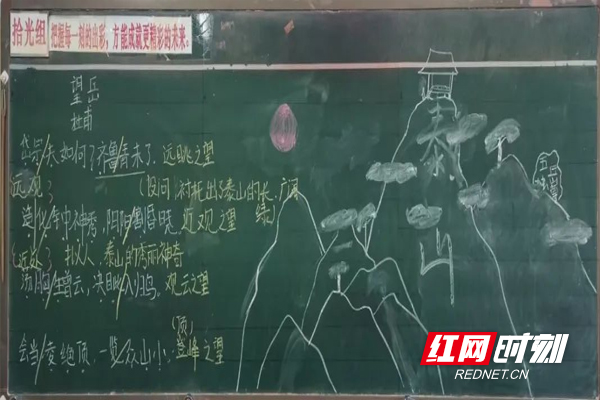 拾光组 把握每一刻的出彩,方能成就更精彩的未来。
望岳
杜甫
岱宗夫如何?齐鲁青未了.远眺之望
远观
(设问 衬托出了泰山的长,广阔
绿)
造化钟神秀,阴阳割昏晓.近观之望
(近处) 拟人、泰山的秀丽神奇
曾云,决眦入归鸟。观云之望
(顶)
会当凌绝顶.一览众山小.登峰之望
泰山
红网时刻
REDNET.CN